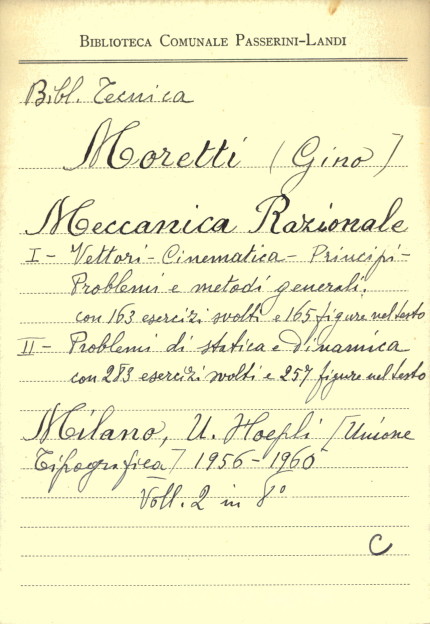 BIBLIOTECA COMUNALE PASSERINI-LANDI
Bibl. Tecnica
Moretti (Gino)
Meccanica Razionale
I - Vettori - Cinematica - Principi -
Problemi e metodi generali.
con 163 esercizi svolti e 165 figure nel testo
II - Problemi di statica e dinamica
con 283 esercizi svolti e 257 figure nel testo
Milano, U. Hoepli [Unione
Tipografica] 1956-1960
Voll. 2 in 8°
C